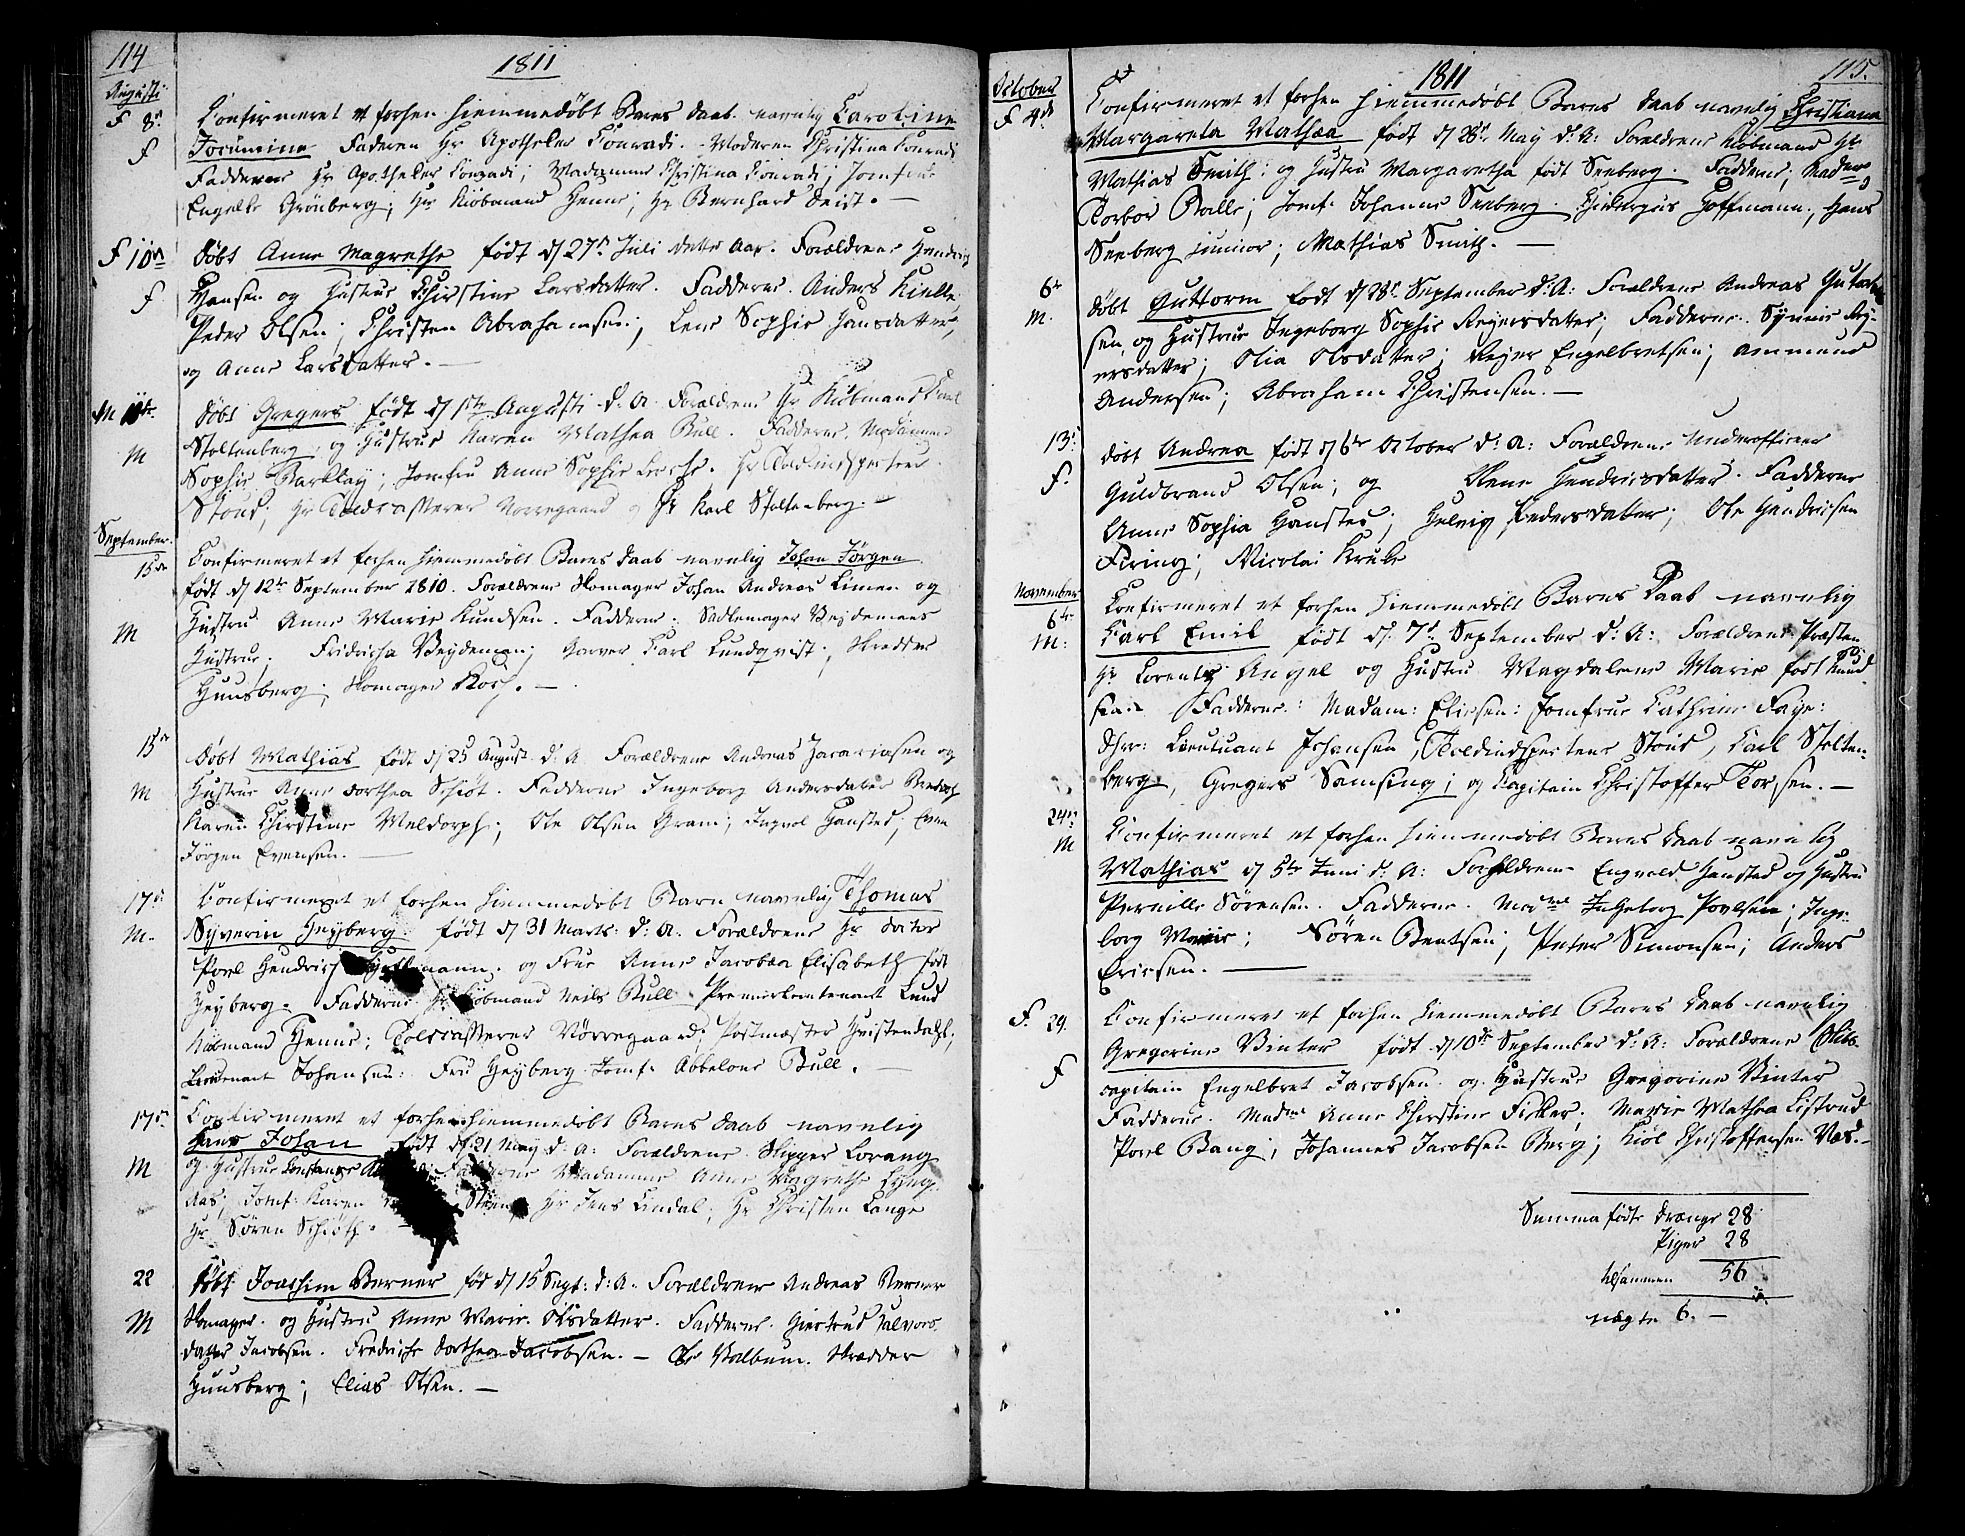 114
1811
Augusti
F 8de
Confirmeret et forhen hiemmedøbt Barns Daab navnlig Caroline
F
Jocumine Faderen Hr Apotheker Conradi. Moderen Christina Conradi
Fadderne Hr Apotheker Conradi; Madamme Christina Conradi; Jomfrue
Engelke Grönberg; Hr Kiöbmand Henne; Hr Bernhard Deist. —
F 10de
Døbt Anne Magrethe født d 27de Juli dette Aar. Forældrene Hendrig
F
Hansen og Hustrue Christine Larsdatter. Fadderne. Anders Kielle
Peder Olsen; Christen Abrahamsen; Lene Sophie Hansdatter,
og Anne Larsdatter. —
M
Døbt Gregers født d 1ste Augusti d: A. Forældrene Hr Kiöbmand Carl
M
Stoltenberg, og Hustrue Karen Mathea Bull. Fadderne. Madamme
Sophie Barklay; Jomfru Anne Sophie Lerche. Hr Toldinspecteur
Stoud; Hr Toldcasserer Nörregaard og Hr Karl Stoltenberg. —
September
15de
Confirmeret et forhen hiemmedøbt Barns Daab navnlig Johan Jörgen
født d 12te September 1810. Forældrene Skomager Johan Andreas Limen og
M
Hustru Anne Marie Knudsen. Fadderne. Sadlemager Beidemans
Hustrue; Fridricha Beydeman; Garver Carl Lundqvist; Skredder
Huusberg; Skomager
15de
Døbt Mathias født d 25 August d: A Forældrene Andreas Zacariasen og
M
Hustrue Anne Dorthea Schiöt. Fadderne Ingeborg Andersdatter
Karen Christine Meldorph; Ole Olsen Gram; Ingvol Hansted; Even
Jörgen Evensen. —
17de
Confirmeret et forhen hiemmedøbt Barn navnlig Thomas
M.
Syverin Heyberg født d 31 Marts d: A. Forældrene Hr Doctor
Povel Hendrich og Frue Anne Jacobæa Elisabeth født
Heyberg. Fadderne Hr Kiöbmand Neils Bull Premierlieutenant Lund
Kiöbmand Henne; Toldcasserer Nörregaard; Postmester Hvistendahl;
Lieutenant Johansen: Fru Heyberg Jomf: Abbelone Bull. —
17de
Confirmeret et forhen hiemmedøbt Barns Daab navnlig
Hans Johan født d 21 May d: A: Forældrene Skipper Lorang
M
og Hustrue Constanze Fadderne Madamme Anne Magrethe Lyng
Aas; Jomf: Karen Steen; Hr Jens Lindal; Hr Christen Lange
Hr Sören Schiöth. —
22
Døbt Joachim Berner fød d 15 Sept: d: A. Forældrene Andreas Berner
M
Skomager. og Hustru Anne Marie Olsdatter. Fadderne. Giertrud Halvors
datter Jacobsen. Fredriche Dorthea Jacobsen. — Balbum. Skredder
Huusberg; Elias Olsen. —
1811
115.
October
F 4de
Confirmeret et forhen hiemmedøbt Barns Daab navnlig Christiane
Margareta Mathea født d 28de May d: A: Forældrene Kiöbmand Hr
Mathias Smith: og Hustru Margaretha født Seeberg. Fadderne; Madme
Torbor Balle; Jomf: Johanne Seeberg. Chirurgus Hoffmann; Hans
Seeberg junior; Mathias Smith. —
6te
M.
Døbt Guttorm født d 28de September d: A: Forældrene Andreas
sen og Hustrue Ingeborg Sophie Reyersdatter; Fadderne. Synnie Rey-
ersdatter; Olia Olsdatter; Reyer Engelbretsen; Ammund
Andersen; Abraham Christensen. —
13de
F.
Døbt Andrea født d 6te October d: A: Forældrene Underofficeer
Guldbrand Olsen; og Hendricsdatter. Fadderne
Anne Sophia Hansted; Helvig Pedersdatter; Ole Hendricsen
Firing; Nicolai Kruke
November
6te
Confirmeret et forhen hiemmedøbt Barns Daab navnlig
M:
Carl Emil født d. 7de September d: A: Forældrene Præsten
Hr Lorentz Angel og Hustru Magdalene Marie født Knud-
sen. Fadderne: Madam: Eliesen: Jomfrue Cathrine Faye:
Dhrr: Lieutnant Johansen, Toldinspecteur Stoud, Karl Stolten-
berg, Gregers Samsing; og Capitain Christoffer Torsen. —
24de
M
Confirmeret et forhen hiemmedøbt Barns Daab navnlig
Mathias d 5te Juni d: A: Forældrene Engvold Hansted og Hustru
Pernille Sörensen. Fadderne. Madme Ingeborg Povlsen; Inge-
borg Marie; Sören Bentsen; Peter Simonsen; Anders
Ericsen. —
F. 29.
Confirmeret et forhen hiemmedøbt Barns Daab navnlig
Gregorine Winter født d 10de September d: A: Forældrene Skibs-
F
capitain Engelbret Jacobsen og Hustrue Gregorine Winter
Fadderne. Madme Anne Christine Ficker; Marie Mathea Listrud
Povel Bang; Johannes Jacobsen Berg; Kiöl Christoffersen Næs. —
Summa fødte Drenge 28
Piger 28
tilsammen 56
uægte 6. —